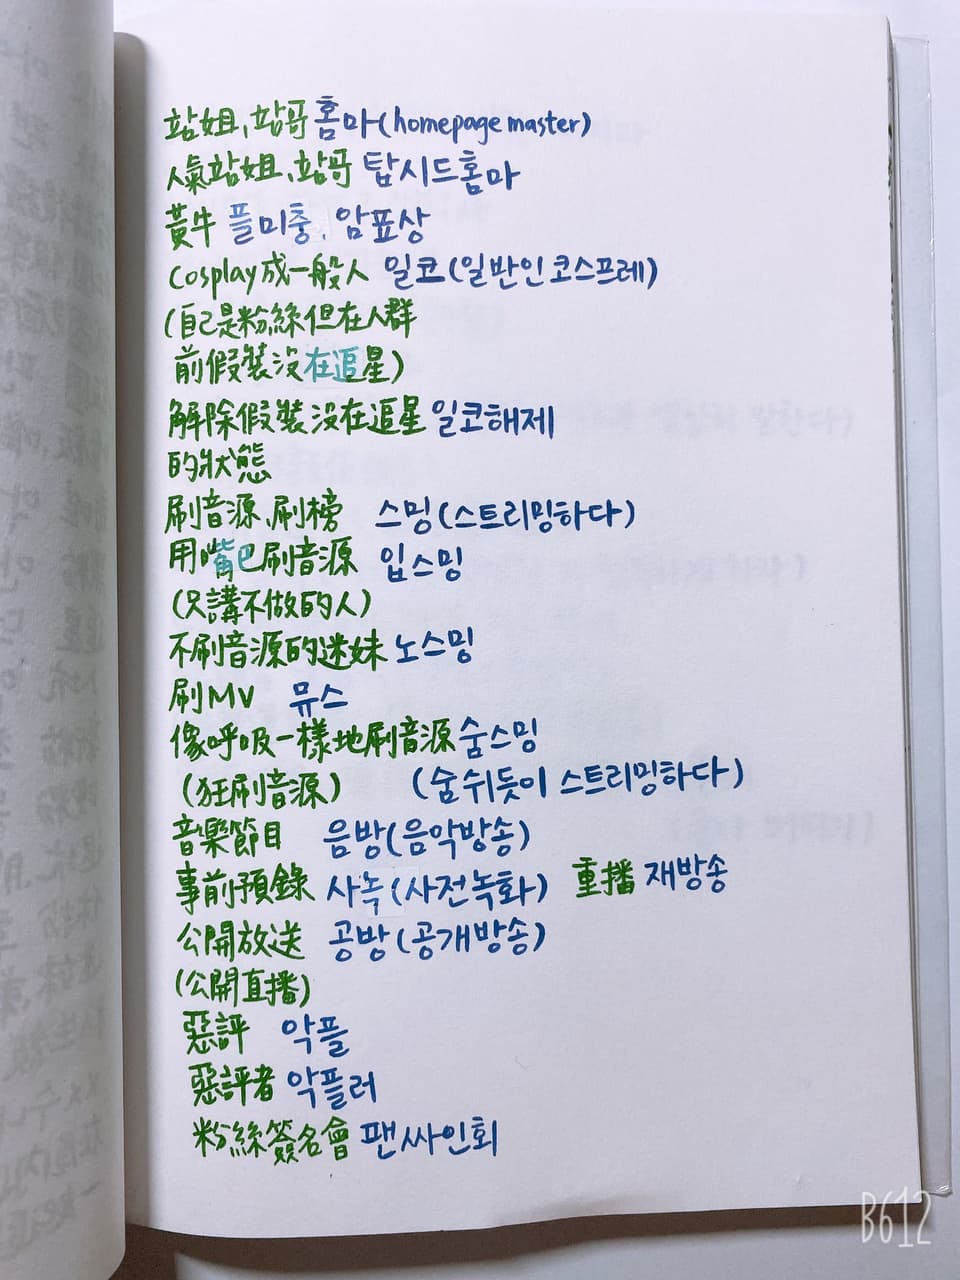 站姐、站哥 홈마(homepage master)
人氣站姐、站哥 탑시드홈마
黃牛 플미충, 암표상
Cosplay成一般人 일코(일반인코스프레)
(自己是粉絲但在人群
前假裝沒在追星)
解除假裝沒在追星 일코해제
的狀態
刷音源、刷榜 스밍(스트리밍하다)
用嘴巴刷音源 입스밍
(只講不做的人)
不刷音源的迷妹 노스밍
刷MV 뮤스
像呼吸一樣地刷音源 숨스밍
(狂刷音源) (숨쉬듯이 스트리밍하다)
音樂節目 음방(음악방송)
事前預錄 사녹(사전녹화) 重播 재방송
公開放送 공방(공개방송)
(公開直播)
惡評 악플
惡評者 악플러
粉絲簽名會 팬싸인회
B612